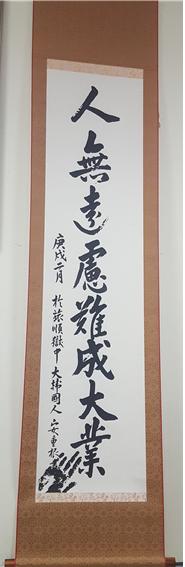 人無遠慮難成大業
庚戌二月 於旅順獄中 大韓國人 安重根